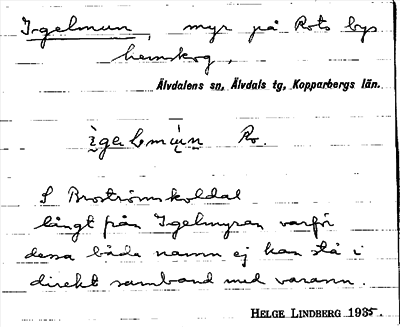 Igelmun, myr på Rots bys
hemskog,
Älvdalens sn, Älvdals tg, Kopparbergs län.
ìgelmùn Ro.
S Broströmskoldal
långt från Igelmyran varför
dessa båda namn ej kan stå i
direkt samband med varann.
HELGE LINDBERG 1935.